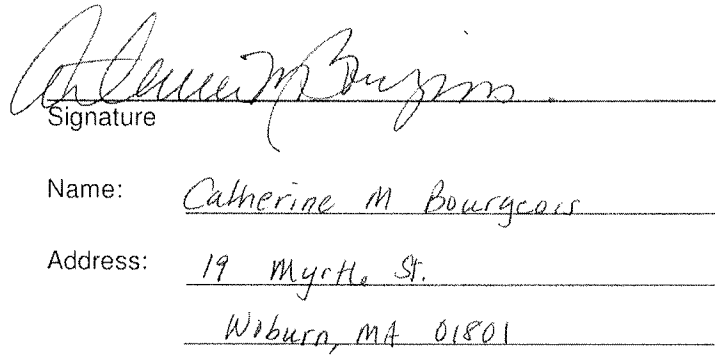 Catherine M Bourgeois
Signature
Name: Catherine M Bourgeois
Address: 19 Myrtle St.
Woburn, MA 01801